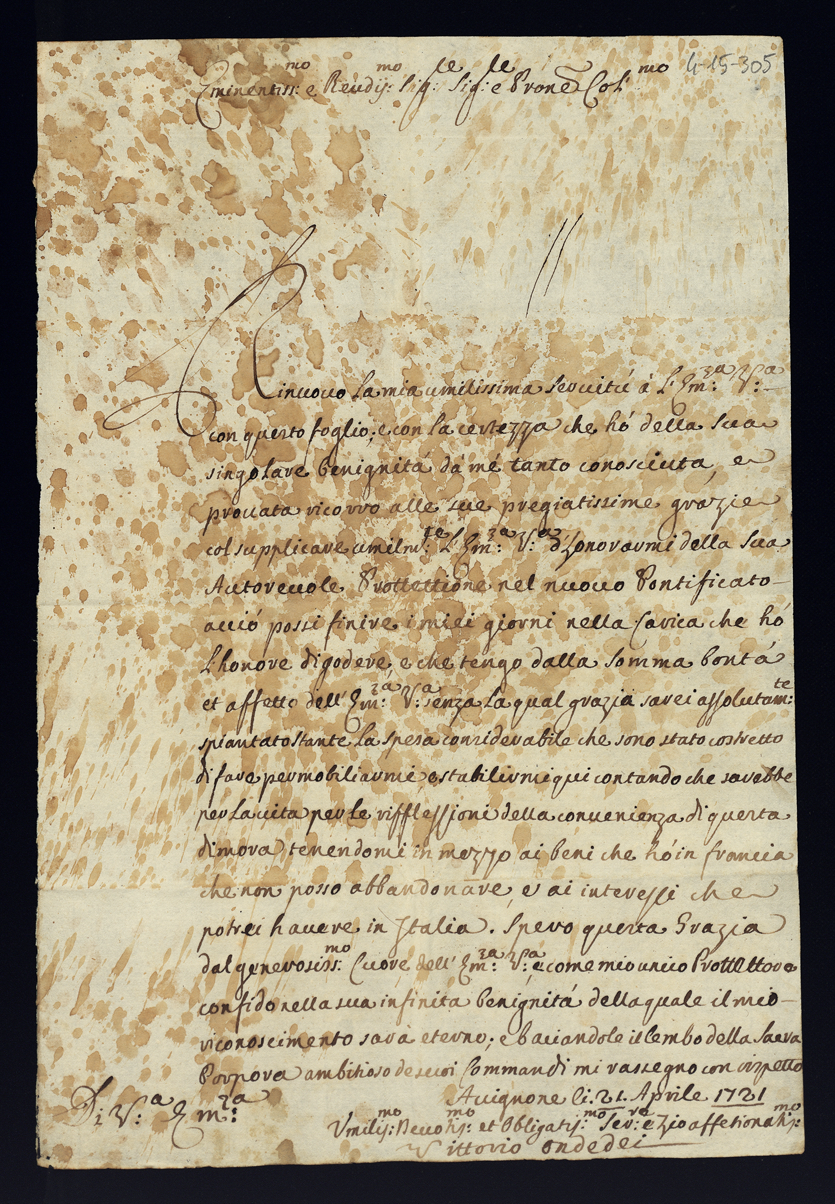 4-15-305
Eminentiss:mo e Reudis:mo Sig:re Sig:re e Prone Col:mo
Rinuouo la mia umilissima seruitú à l'Em:za V:a
con questo foglio; e con la certezza che hó della sua
singolare benignitá dá mé tanto conosciuta, e
prouata ricorro alle sue pregiatissime grazie
col supplicare umilm:te l'Em:za V:a d'honorarmi della sua
Autoreuole Prottettione nel nuouo Pontificato
acció possi finire i miei giorni nella Carica che hó
l'honore di godere e che tengo dalla somma bontá
et affetto dell'Em:za V:a senza la qual grazia sarei assolutam:te
spiantato stante la spesa considerabile che sono stato costretto
di fare per mobiliarmi e stabilirmi qui contando che sarebbe
per la uita per le rifflessioni della conuenienza di questa
dimora tenendomi in mezzo ai beni che hó in francia
che non posso abbandonare e ai interessi che
potrei hauere in Italia. Spero questa Grazia
dal generosiss:mo Cuore dell'Em:za V:a e come mio unico Prottettore
confido nella sua infinita benignitá della quale il mio
riconoscimento sarà eterno; e baciandole il lembo della Sacra
Porpora ambitioso de suoi Commandi mi rassegno con rispetto
Di V:a Em:za
Auignone li 21 Aprile 1721
Vmilis:mo Deuotis:mo et Obligatis:mo Ser:re e Zio affetionatis:mo
Vittorio Ondedei